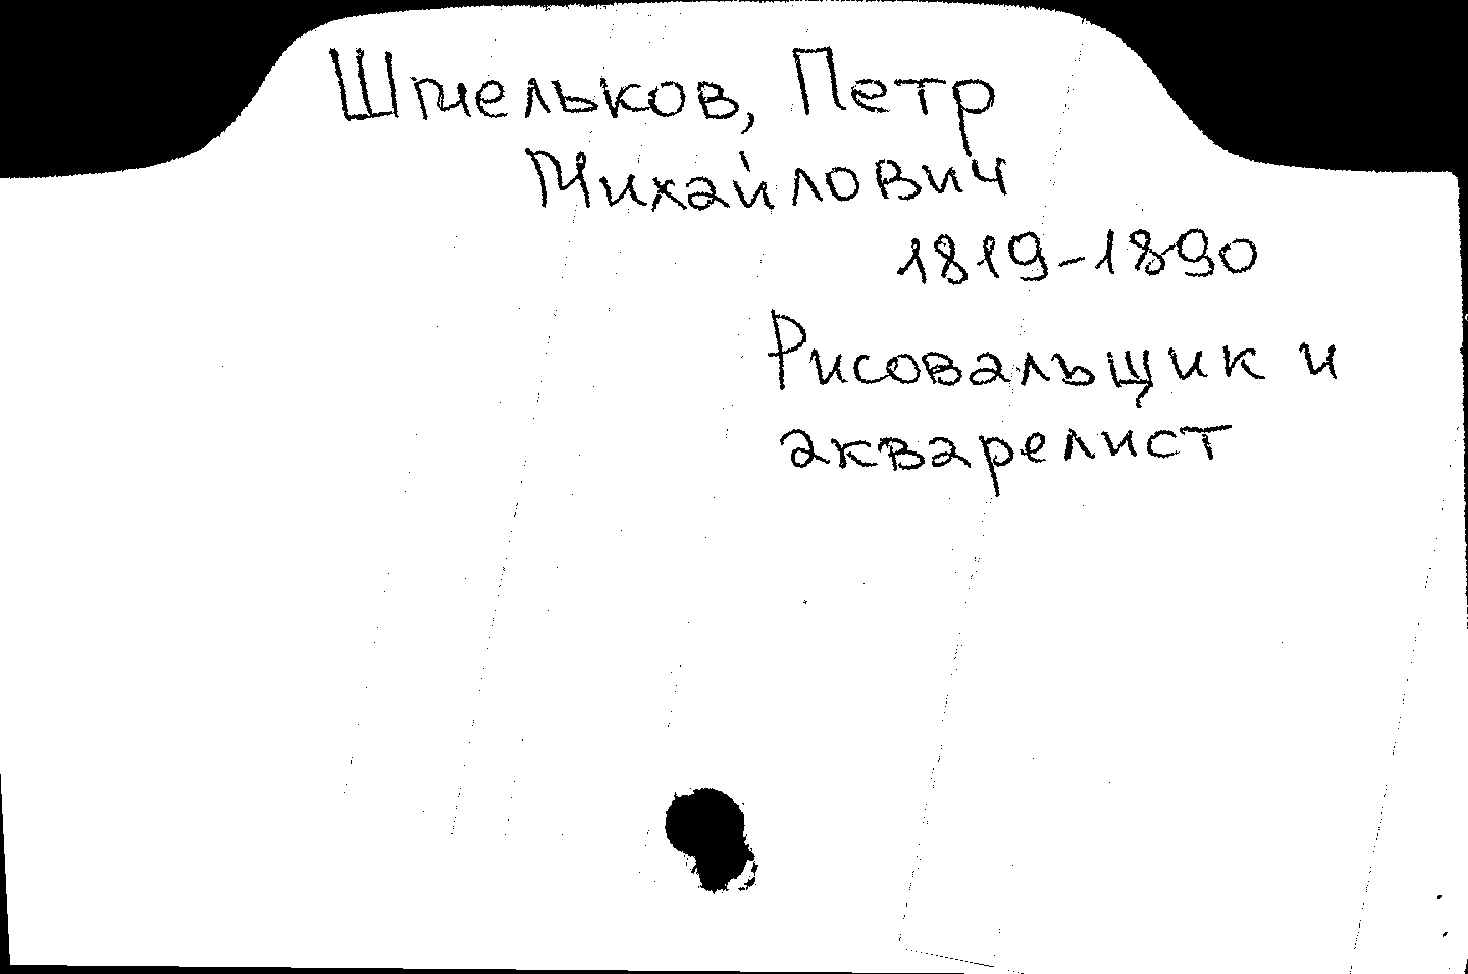 Шмельков, Петр
Михайлович
1819-1890
Рисовальщик и
акварелист